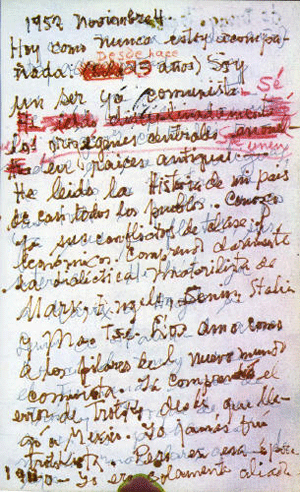 1952 Noviembre 4.
Hoy como nunca estoy acompa
Desde hace
ñada. 25 años) Soy
un ser yá comunista. Sé
los orígenes centrales Se unen
en raices antiguas
He leido la Historia de mi pais
de casi todos los pueblos. Conozco
ya sus conflictos de clase y
económicos. Comprendo claramente
la dialéctica materialista de
Marx, Engels, Lenin, Stalin
y Mao Tse. Los amo como
a los pilares del nuevo mundo
comunista. Ya comprendí el
error de Trotsky desde que lle
gó a Mexico. Yo jamás fuí
trotskista. Pero en esa época
1940 - Yo era solamente aliada